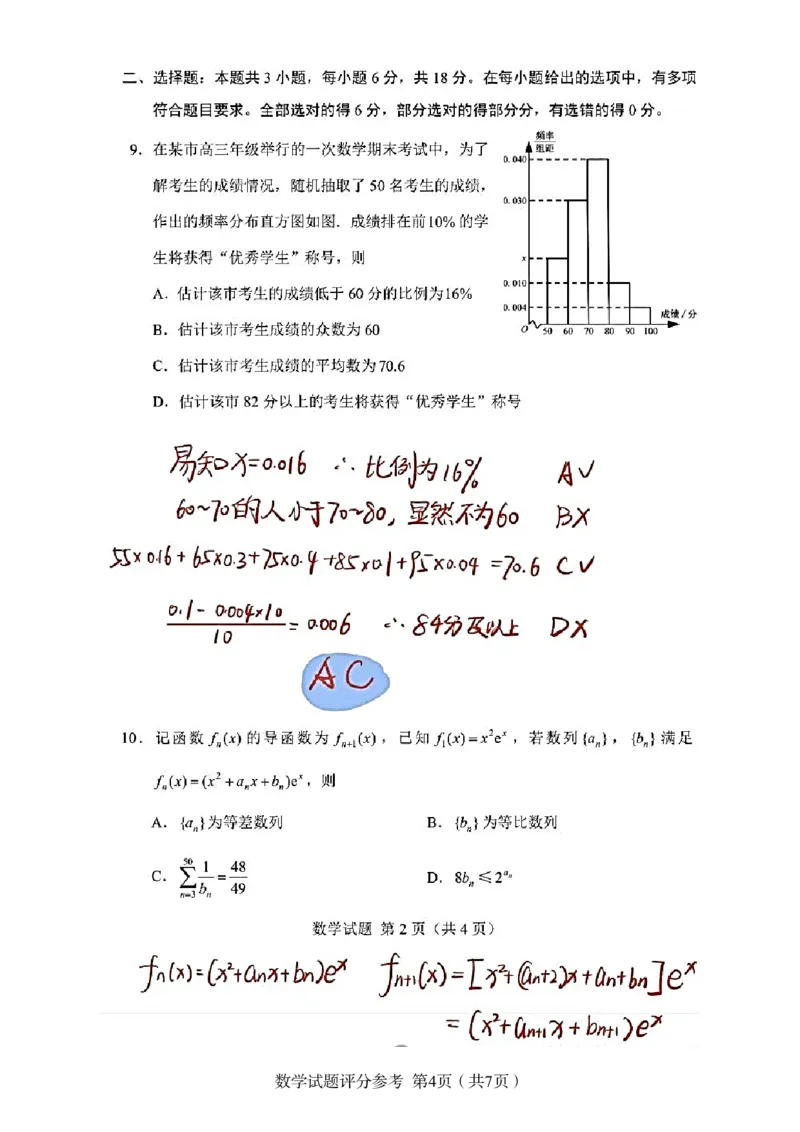 二、选择题：本题共 3 小题，每小题 6 分，共 18 分。在每小题给出的选项中，有多项
符合题目要求。全部选对的得 6 分，部分选对的得部分分，有选错的得 0 分。
9．在某市高三年级举行的一次数学期末考试中，为了
解考生的成绩情况，随机抽取了 50 名考生的成绩，
作出的频率分布直方图如图．成绩排在前10% 的学
生将获得“优秀学生”称号，则
频率
组距
0.040
0.030
x
0.010
0.004
O 50 60 70 80 90 100
成绩/分
A．估计该市考生的成绩低于 60 分的比例为16%
B．估计该市考生成绩的众数为 60
C．估计该市考生成绩的平均数为70.6
D．估计该市 82 分以上的考生将获得“优秀学生”称号
易知x=0.016 ∴比例为16% A√
60~70的人小于70~80，显然不为60 B×
55×0.16+65×0.3+75×0.4+85×0.1+95×0.04=70.6 C√
(0.1-0.004×10)/10=0.006 ∴84分及以上 D×
AC
10．记函数 fₙ(x) 的导函数为 fₙ₊₁(x)，已知 f₁(x)=x²eˣ，若数列{aₙ}，{bₙ}满足
fₙ(x)=(x²+aₙx+bₙ)eˣ，则
A．{aₙ}为等差数列 B．{bₙ}为等比数列
C．∑_{n=3}^{50} 1/bₙ=48/49 D．8bₙ≤2^{aₙ}
数学试题 第 2 页（共 4 页）
fₙ(x)=(x²+aₙx+bₙ)eˣ fₙ₊₁(x)=[x²+(aₙ+2)x+aₙ+bₙ]eˣ
=(x²+aₙ₊₁x+bₙ₊₁)eˣ
数学试题评分参考 第4页（共7页）